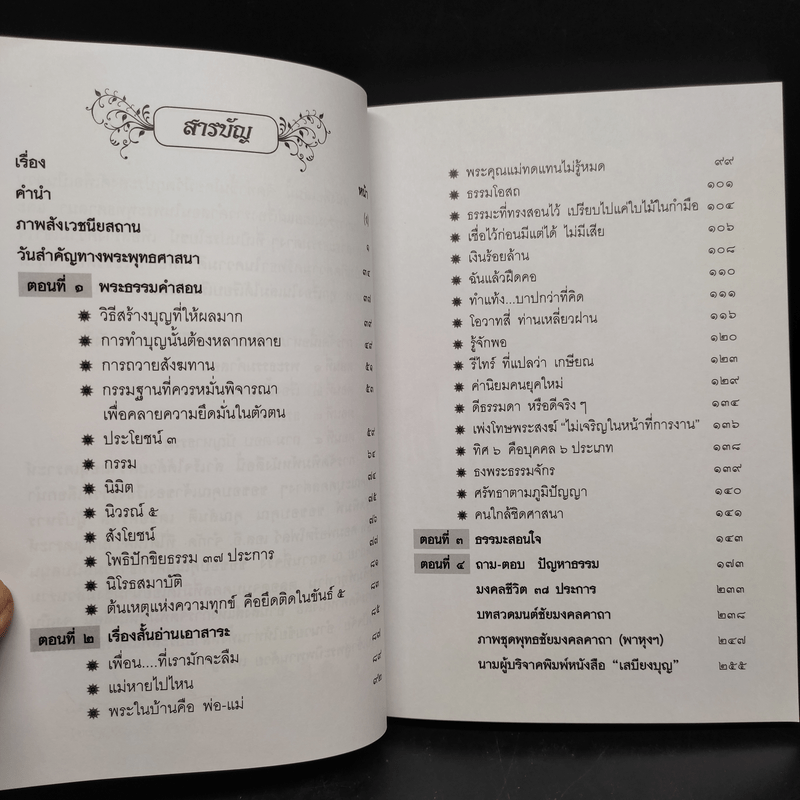 สารบัญ
เรื่อง หน้า
คำนำ
ภาพสังเวชนียสถาน ๑
วันสำคัญทางพระพุทธศาสนา ๓๔
ตอนที่ ๑ พระธรรมคำสอน ๓๗
วิธีสร้างบุญที่ให้ผลมาก ๓๙
การทำบุญนั้นต้องหลากหลาย ๔๙
การถวายสังฆทาน ๕๑
กรรมฐานที่ควรหมั่นพิจารณา
เพื่อคลายความยึดมั่นในตัวตน
ประโยชน์ ๓ ๕๙
กรรม ๖๔
นิมิต ๗๔
นิวรณ์ ๕ ๗๕
สังโยชน์ ๗๖
โพธิปักขิยธรรม ๓๗ ประการ ๗๗
นิโรธสมาบัติ ๘๑
ต้นเหตุแห่งความทุกข์ คือยึดติดในขันธ์ ๕ ๘๓
ตอนที่ ๒ เรื่องสั้นอ่านเอาสาระ ๘๕
เพื่อน....ที่เรามักจะลืม ๘๗
แม่หายไปไหน ๘๘
พระในบ้านคือ พ่อ-แม่ ๙๒
พระคุณแม่ทดแทนไม่รู้หมด ๙๙
ธรรมโอสถ ๑๐๑
ธรรมะที่ทรงสอนไว้ เปรียบไปแค่ใบไม้ในกำมือ ๑๐๔
เชื่อไว้ก่อนมีแต่ได้ ไม่มีเสีย ๑๐๖
เงินร้อยล้าน ๑๐๘
ฉันแล้วฝืดคอ ๑๑๐
ทำแท้ง...บาปกว่าที่คิด ๑๑๑
โอวาทสี่ ท่านเหลี่ยวฝาน ๑๑๖
รู้จักพอ ๑๒๐
รีไทร์ ที่แปลว่า เกษียณ ๑๒๓
ค่านิยมคนยุคใหม่ ๑๒๙
ดีธรรมดา หรือดีจริง ๆ ๑๓๔
เพ่งโทษพระสงฆ์ “ไม่เจริญในหน้าที่การงาน” ๑๓๖
ทิศ ๖ คือบุคคล ๖ ประเภท ๑๓๘
ธงพระธรรมจักร ๑๓๙
ศรัทธาตามภูมิปัญญา ๑๔๐
คนใกล้ชิดศาสนา ๑๔๑
ตอนที่ ๓ ธรรมะสอนใจ ๑๔๓
ตอนที่ ๔ ถาม-ตอบ ปัญหาธรรม ๑๗๓
มงคลชีวิต ๓๘ ประการ ๒๓๓
บทสวดมนต์ชัยมงคลคาถา ๒๓๘
ภาพชุดพุทธชัยมงคลคาถา (พาหุงฯ) ๒๔๗
นามผู้บริจาคพิมพ์หนังสือ “เสบียงบุญ” ๒๕๕